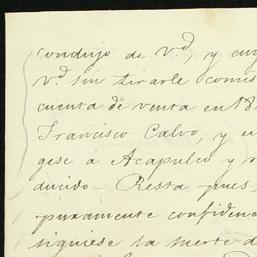 condujo de v.d, y cuy
v.d sin tirarle comis
cuenta de venta en 18
Francisco Calvo, y en
gese á Acapulco y r
ducido - Resta pues,
puramente confidenc
siguiese la suerte d